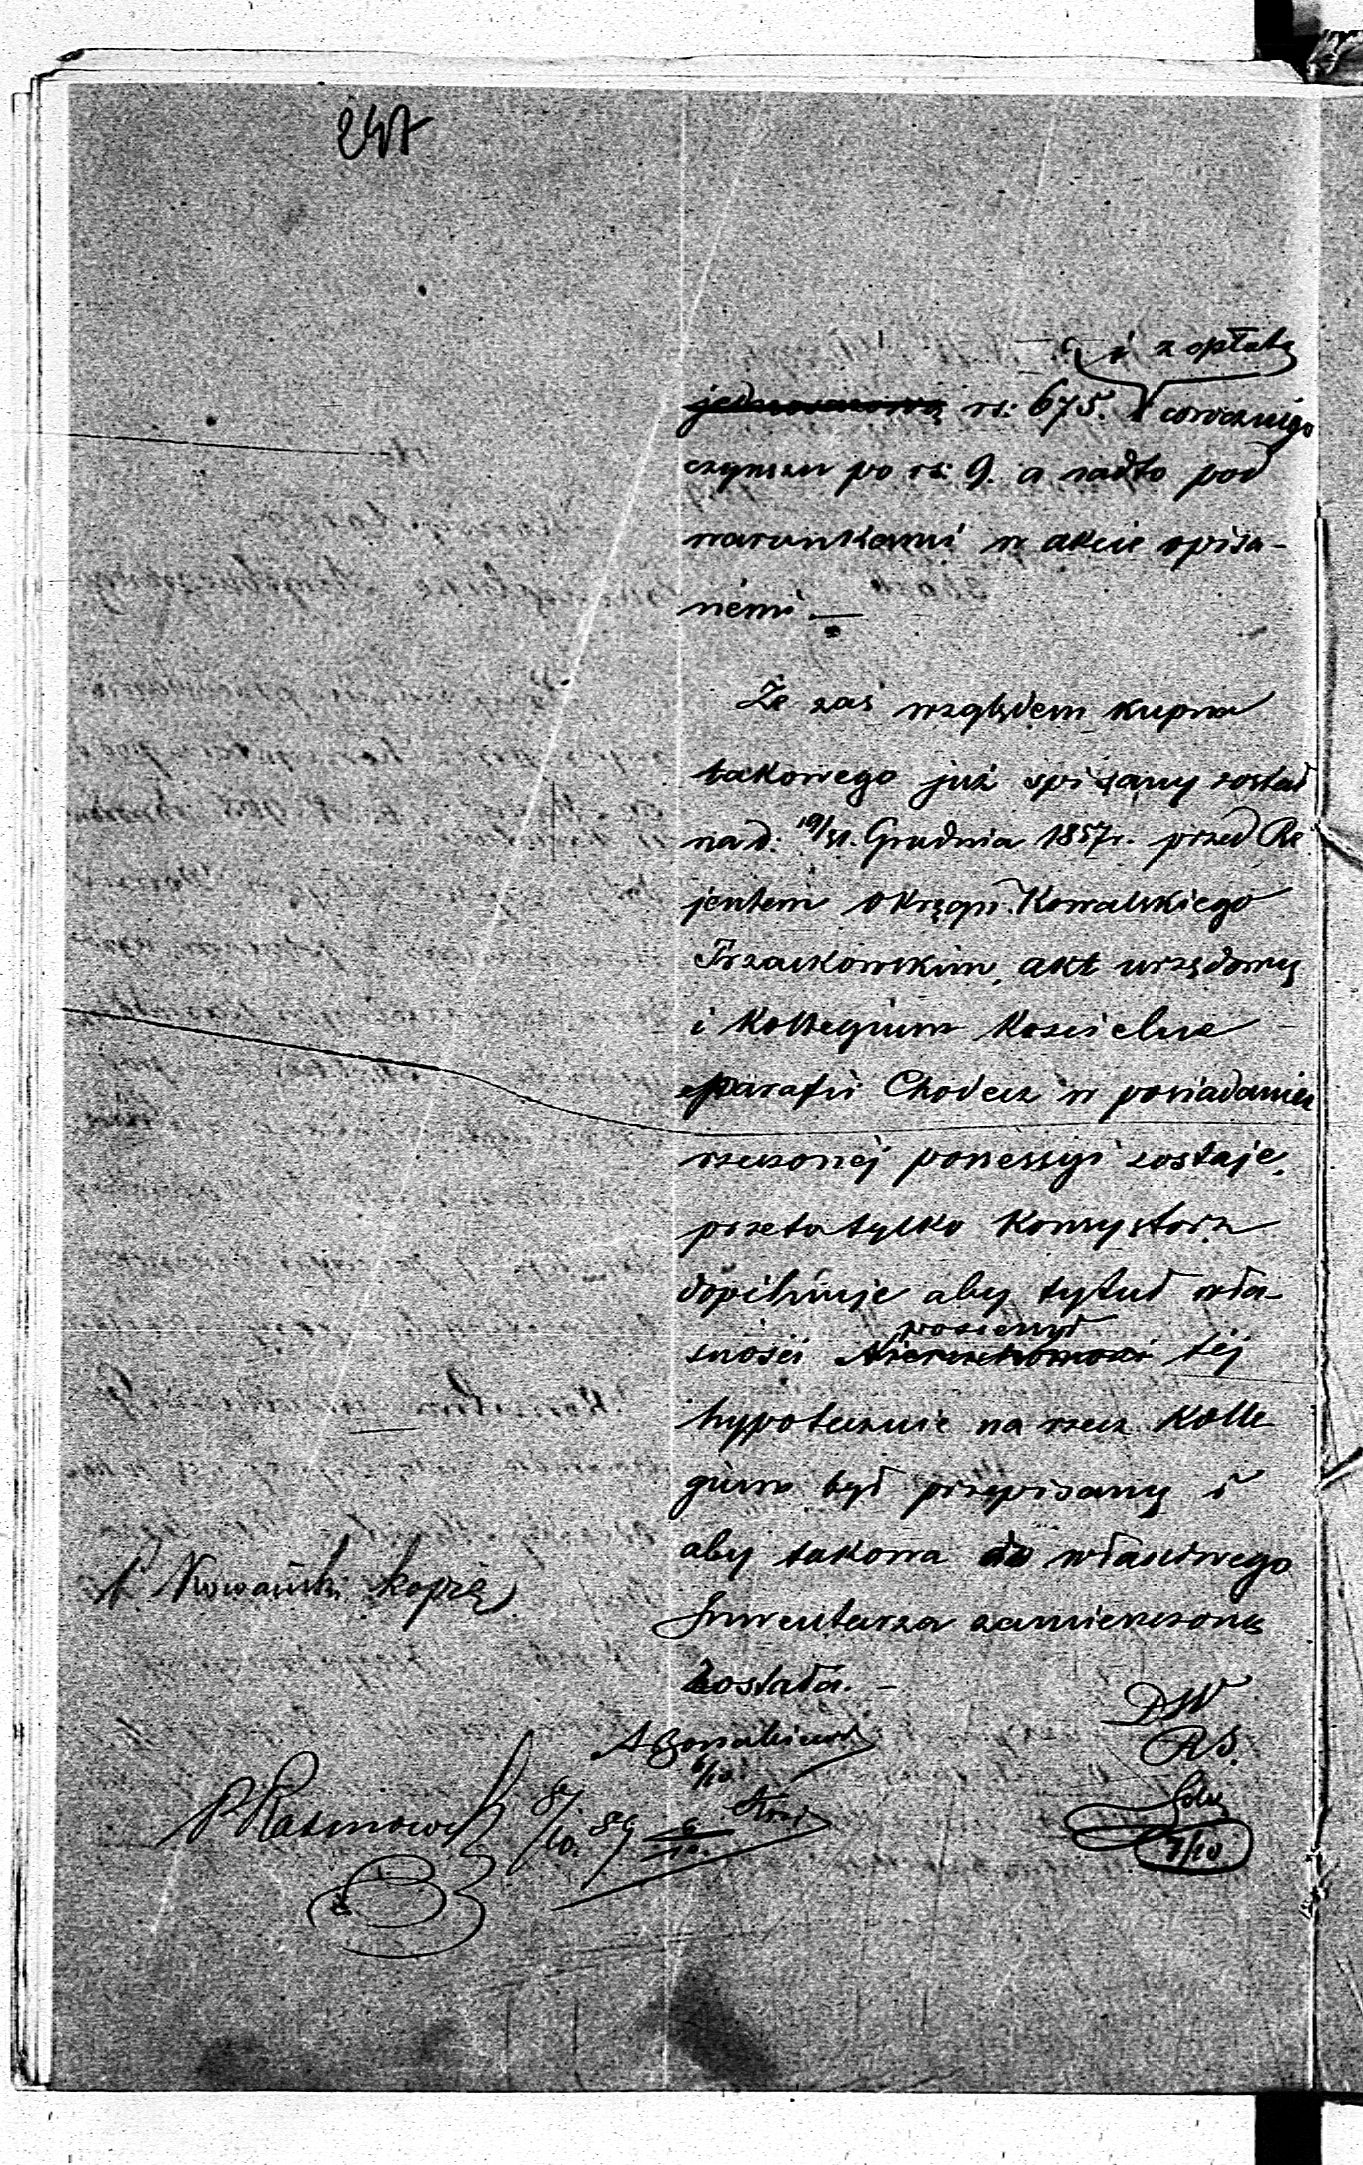 247
i z opłatą
rs: 675. corocznego
czynszu po rs: 9. a nadto pod
warunkami w akcie opisa-
némi.—
Że zaś względem kupna
takowego już spisany został
na d: 19/31. Grudnia 1857r. przed Re
jentem Okręgu Kowalskiego
akt urzędowy
i Kollegium Koscielne
Parafii Chodecz w posiadaniu
rzeczonéj possessyi zostaje,
przeto tylko Konsystorz
dopilnuje aby tytuł wła-
posessyi
sności Nieruchomosci téj
hypotecznie na rzecz Kolle
gium był przepisany i
aby takowa do właściwego
Inwentarza zamieszczoną
została.—
Nowański kopię
DW
RS.
6/10.
8/10. 59
7/10